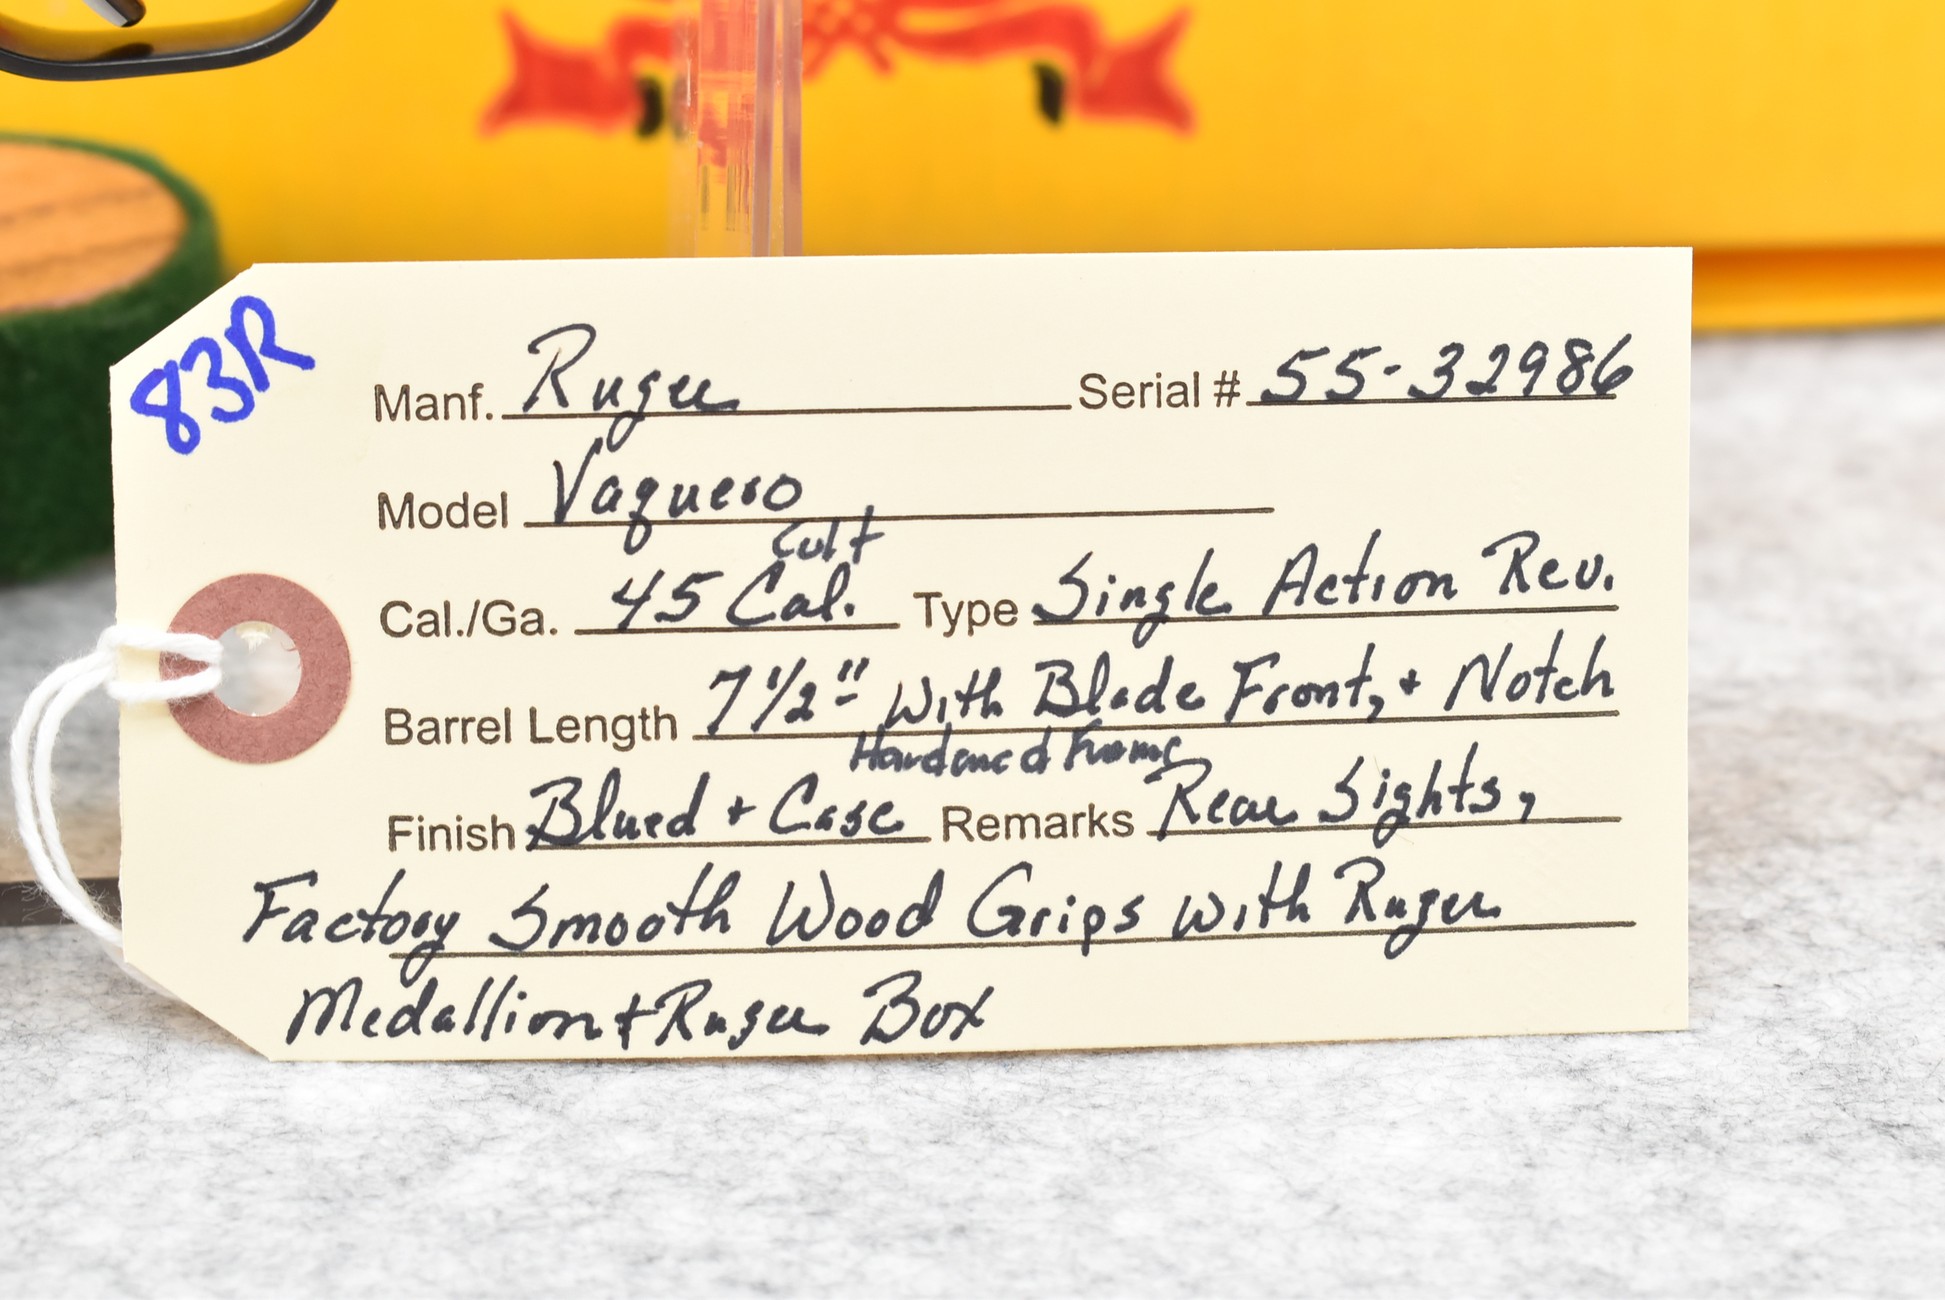 83R
Manf. Ruger Serial # 55-32986
Model Vaquero
Colt
Cal./Ga. 45 Cal. Type Single Action Rev.
Barrel Length 7 1/2" with Blade Front, + Notch
Hardened Frame
Finish Blued + Case Remarks Rear Sights,
Factory Smooth Wood Grips with Ruger
Medallion + Ruger Box